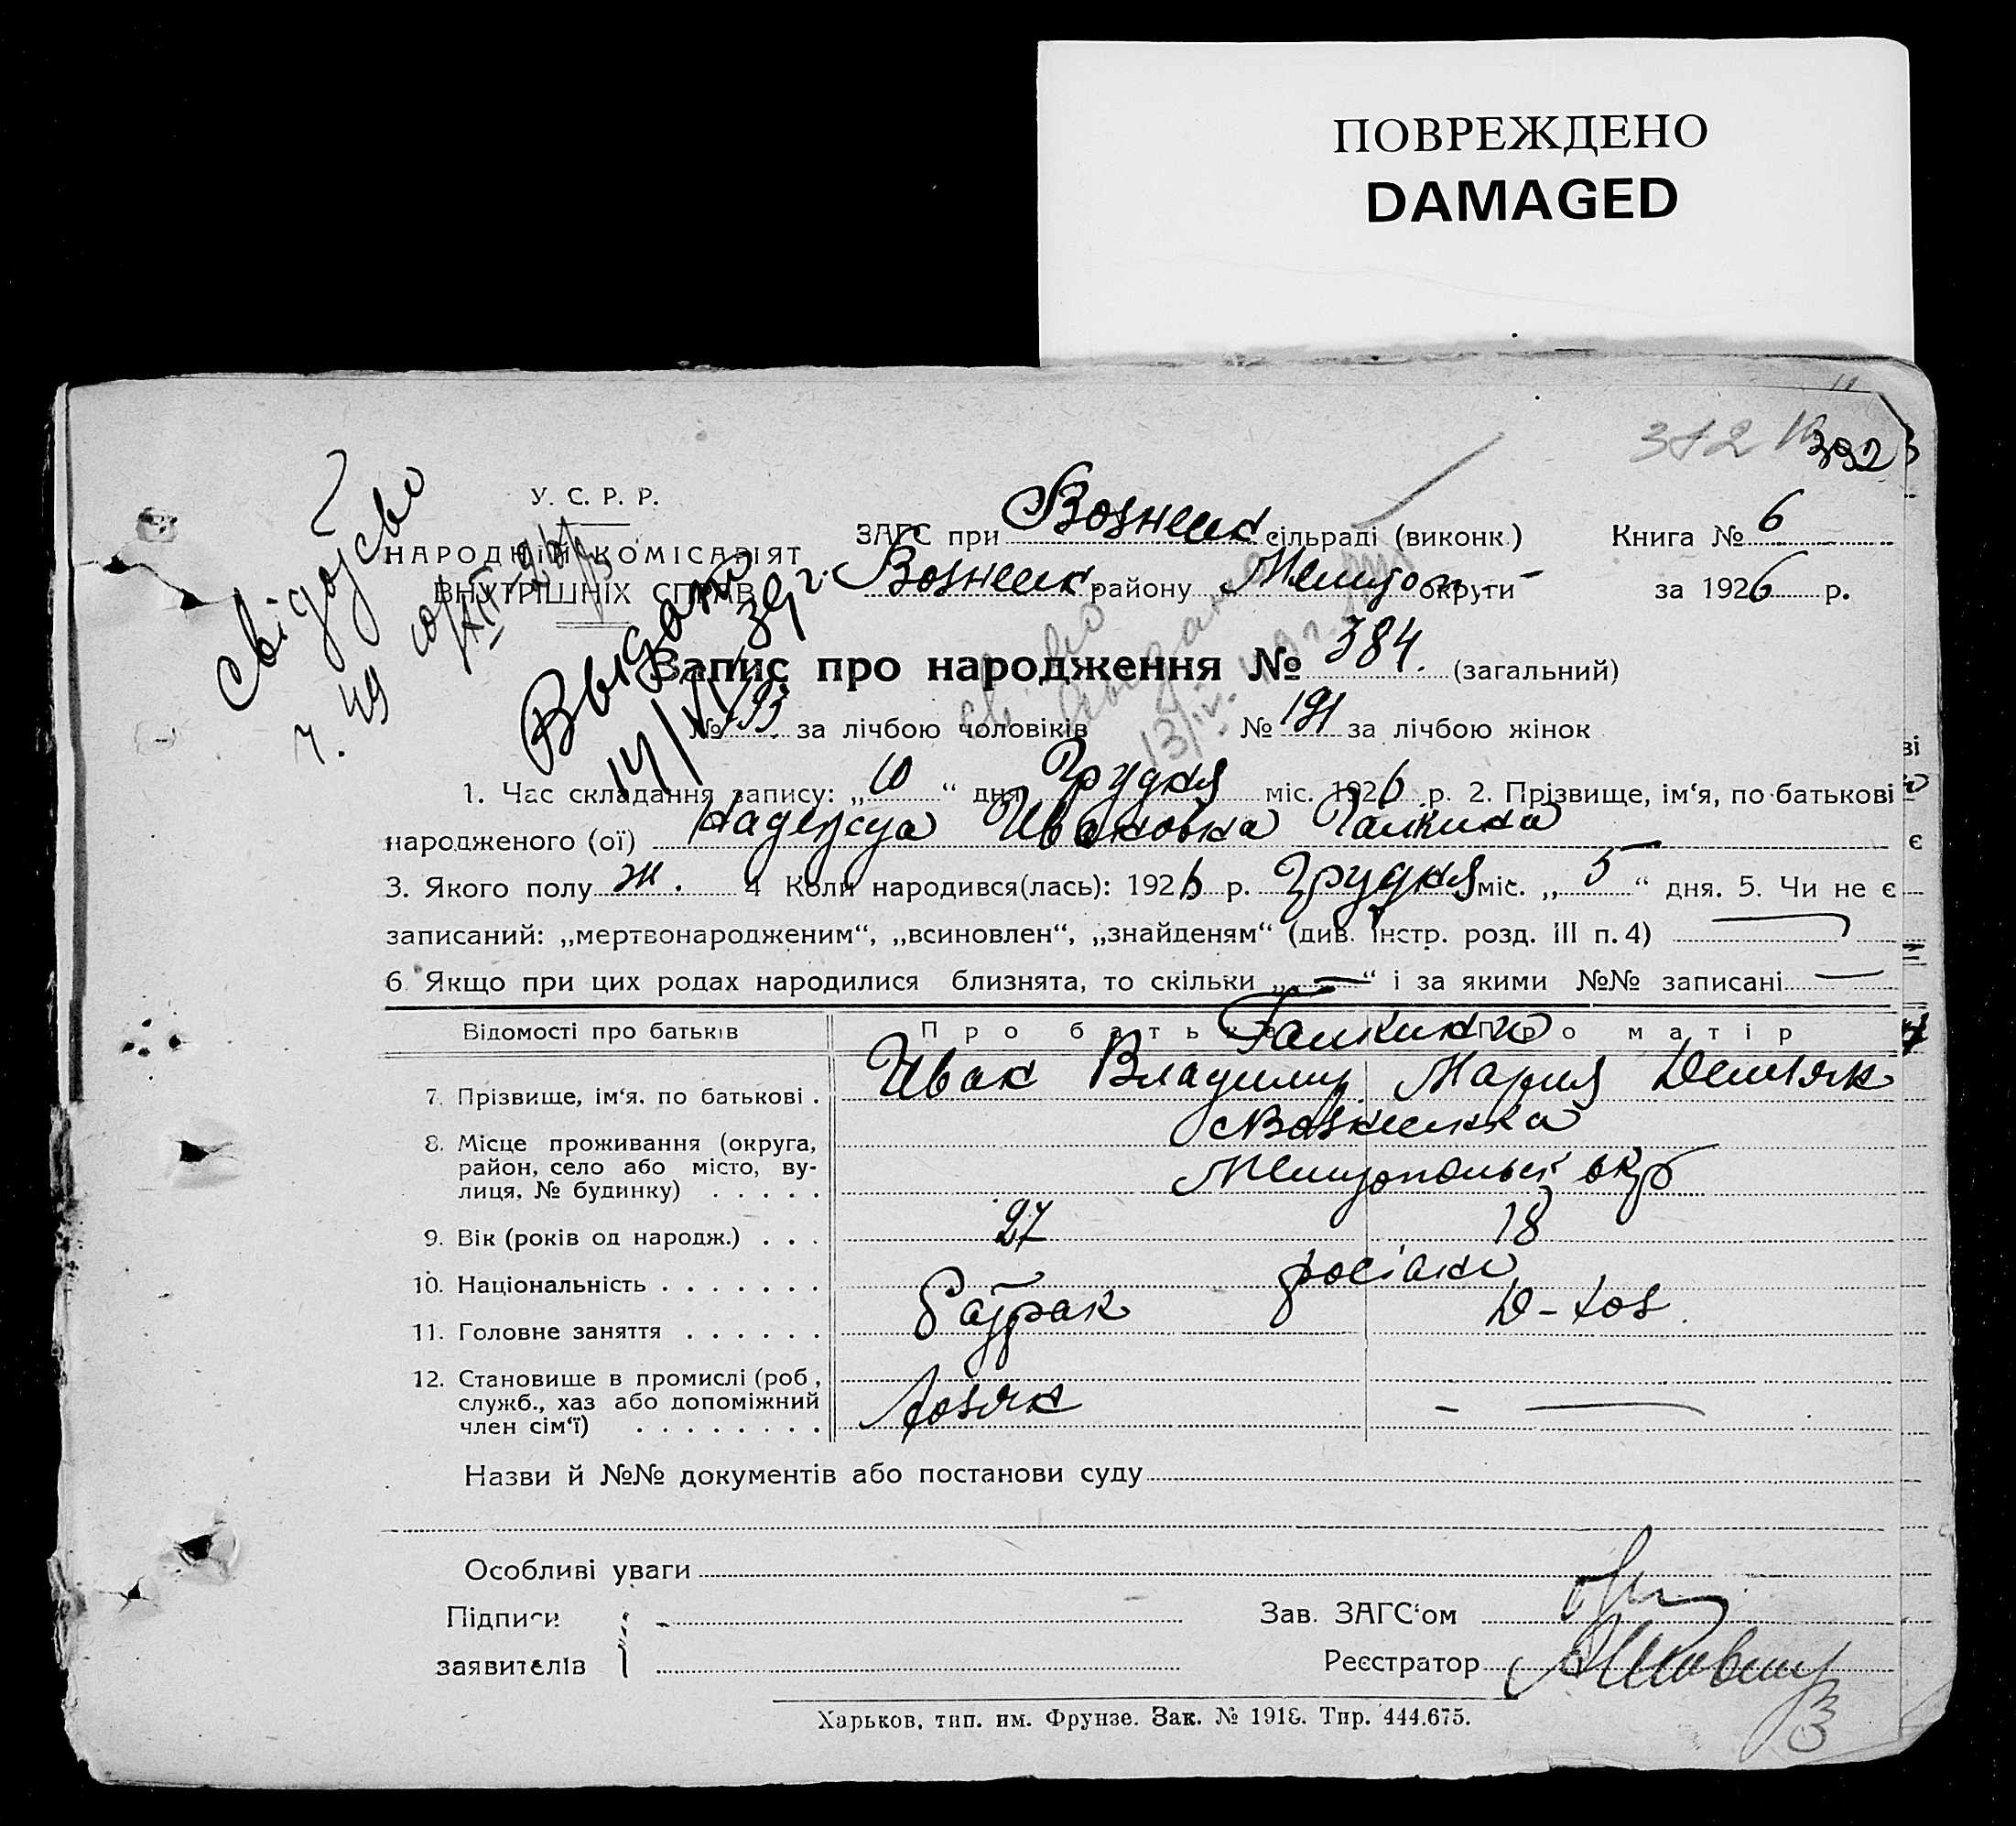 ПОВРЕЖДЕНО
DAMAGED
392
У. С. Р. Р.
НАРОДНІЙ КОМІСАРІЯТ
ВНУТРІШНІХ СПРАВ
ЗАГС при Вознесенск сільраді (виконк.) Книга № 6
Вознесенск району Мелитоп округи за 1926 р.
Выдано
Запис про народження № 384. (загальний)
№ 193 за лічбою чоловіків № 191 за лічбою жінок
1. Час складання запису: „10“ дня Грудня міс. 1926 р. 2. Прізвище, ім‘я, по-батькові
народженого (ої) Надежда Ивановна Галкина
3. Якого полу ж. 4 Коли народився(лась): 1926 р. Грудня міс. „5“ дня. 5. Чи не є
записаний: „мертвонародженим“, „всиновлен“, „знайденям“ (див. інстр. розд. III п. 4) —
6. Якщо при цих родах народилися близнята, то скільки „—“ і за якими №№ записані —
Відомості про батьків Про батька Про матір
Галкини
7. Прізвище, ім‘я. по батькові . Иван Владимир Мария Демьян
8. Місце проживання (округа, Вознесенка
район, село або місто, ву-
лиця, № будинку) . . . . . Мелитопольск окр
9. Вік (років од народж.) . . . 27 18
10. Національність . . . . . . . росіяни
11. Головне заняття . . . . . . D-хоз.
12. Становище в промислі (роб,
служб., хаз або допоміжний
член сім‘ї) . . . . . . . . Хозяін —
Назви й №№ документів або постанови суду
Особливі уваги
Підписи
заявителів
Зав. ЗАГС‘ом
Реєстратор
Харьков, тип. им. Фрунзе. Зак. № 1918. Тир. 444.675.